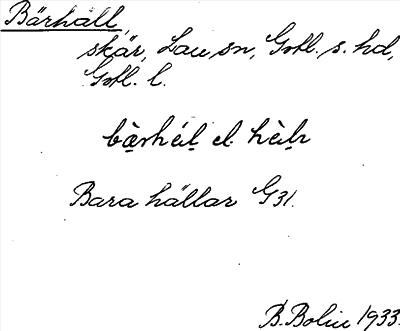 Bärhäll,
skär, Lau sn, Gotl. s. hd,
Gotl. l.
Bara hällar G31.
B. Bolin 1933.